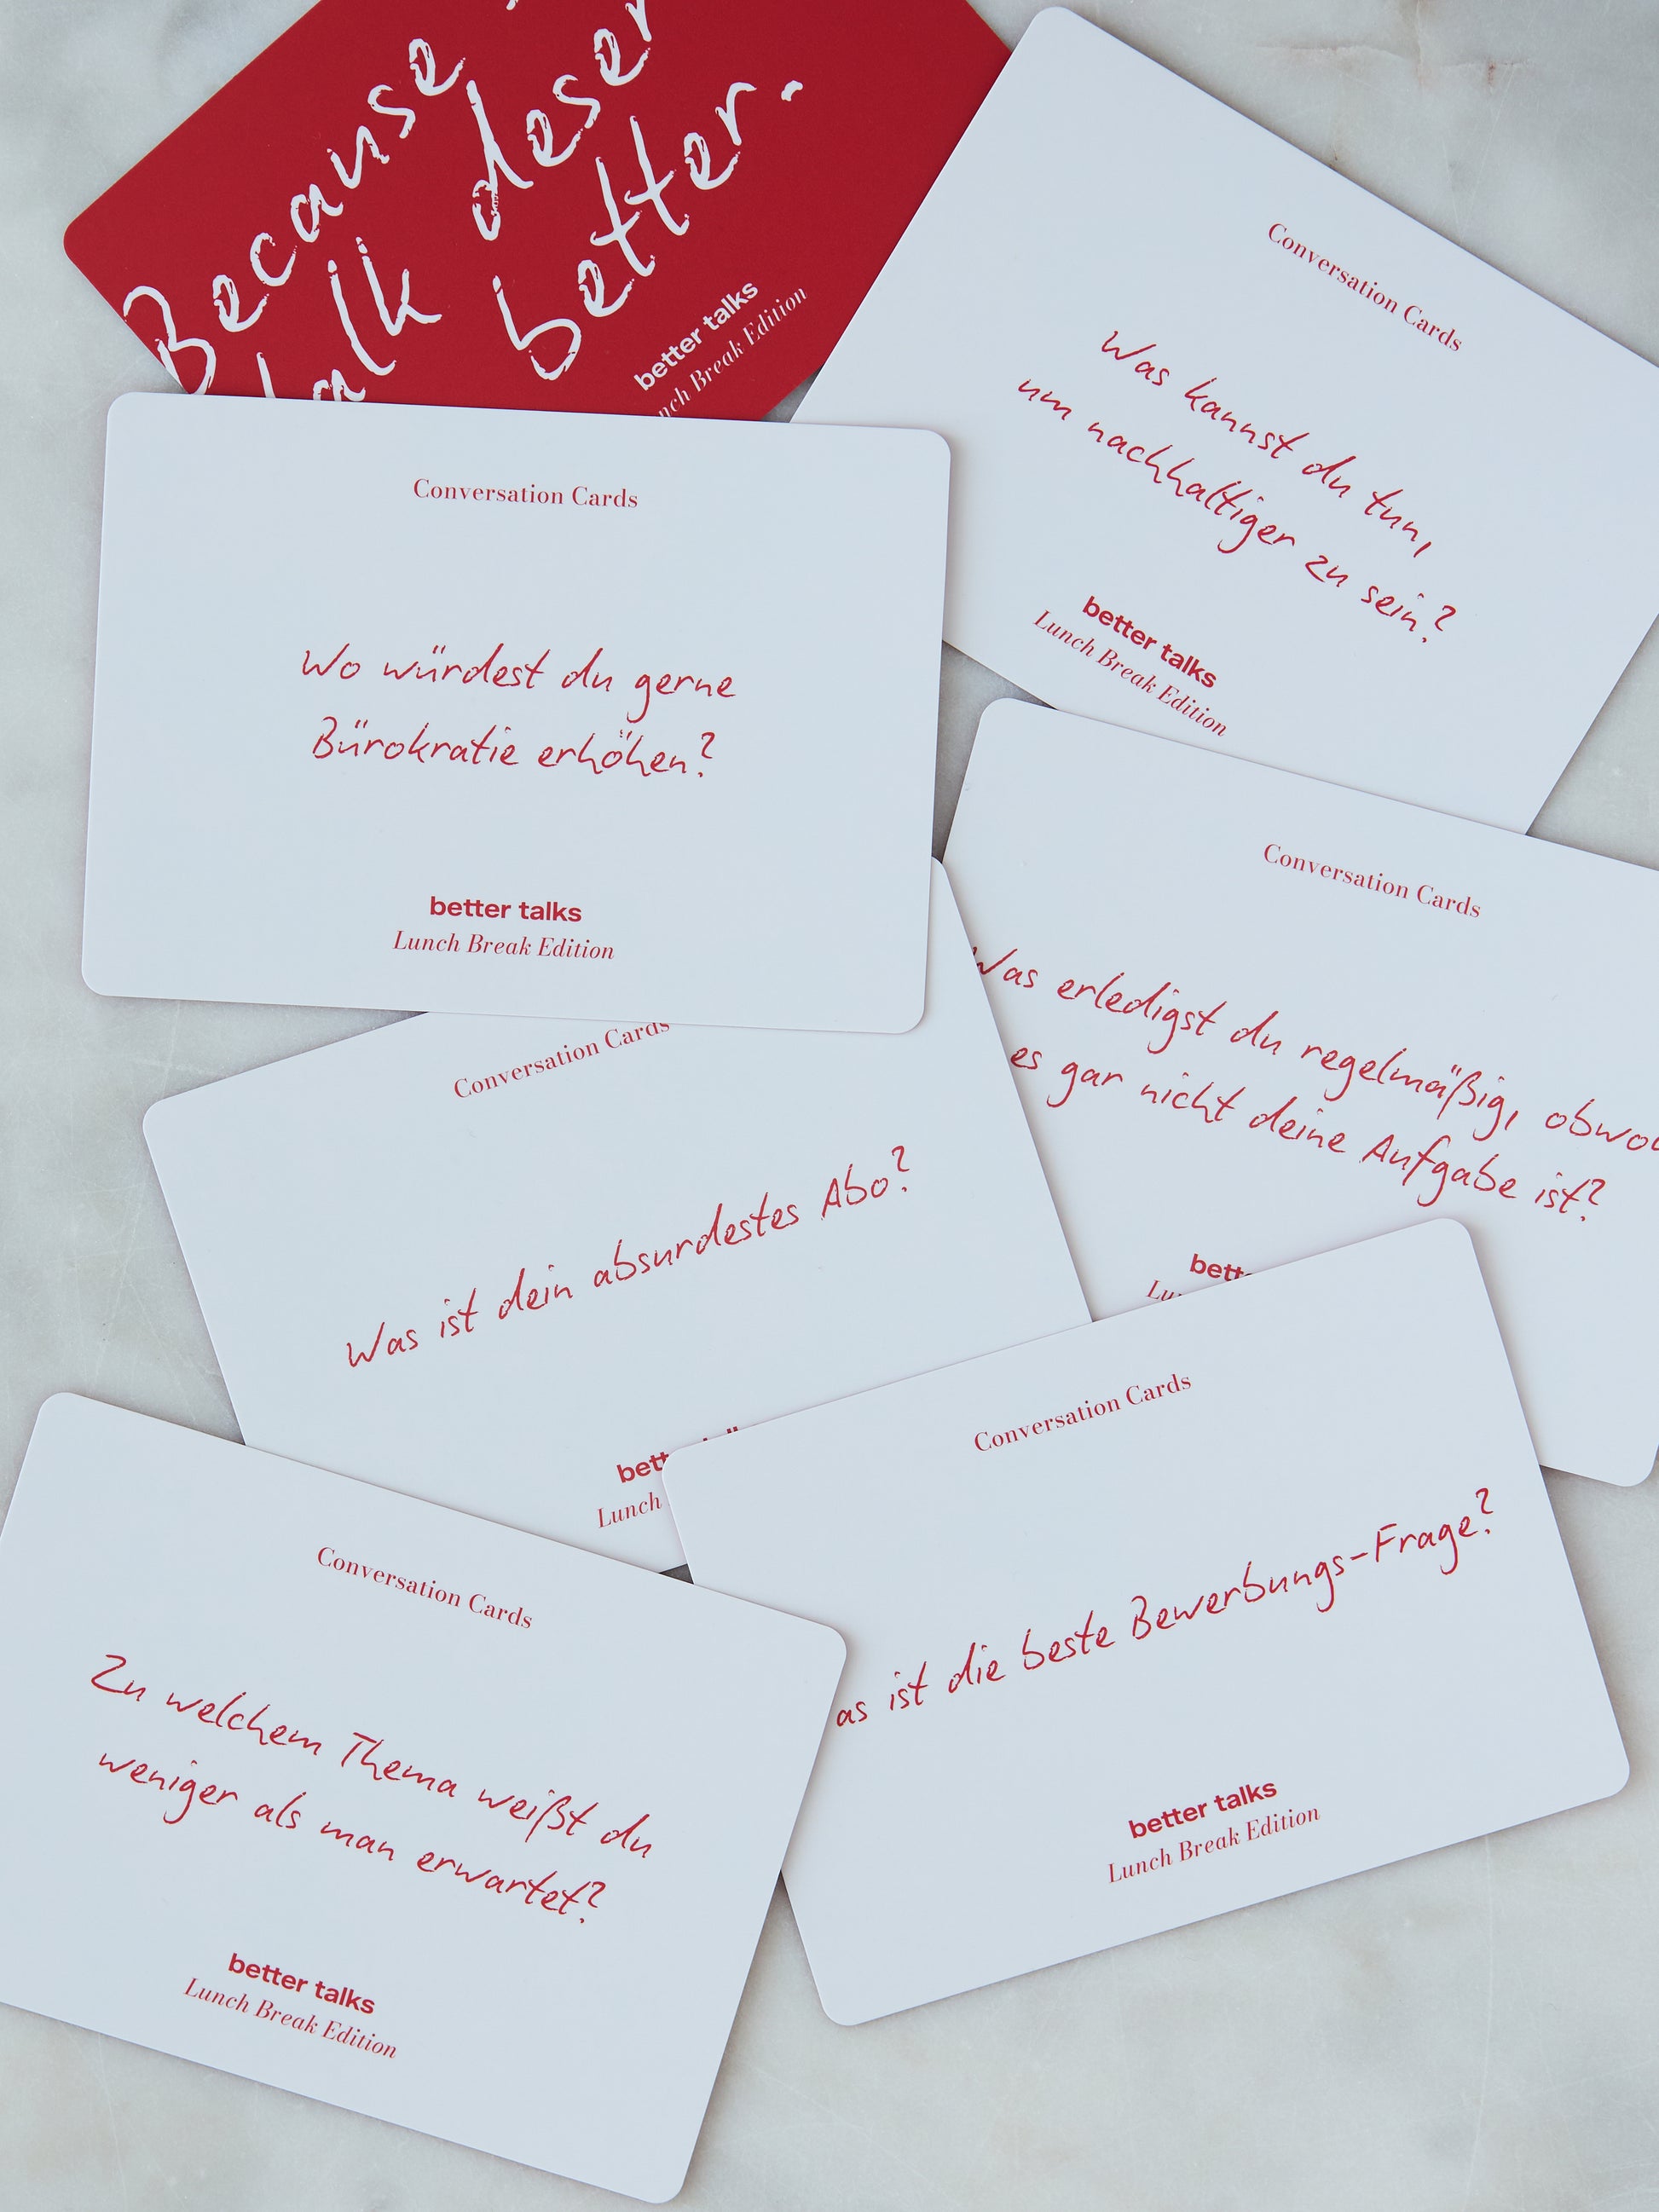 Because
talk
better.
better talks
Break Edition
Conversation Cards
Was kannst du tun,
um nachhaltiger zu sein?
better talks
Lunch Break Edition
Conversation Cards
Wo würdest du gerne
Bürokratie erhöhen?
better talks
Lunch Break Edition
Conversation Cards
Was erledigst du regelmäßig,
es gar nicht deine Aufgabe ist?
Conversation Cards
Was ist dein absurdestes Abo?
Lunch
Conversation Cards
ist die beste Bewerbungs-Frage?
better talks
Lunch Break Edition
Conversation Cards
Zu welchem Thema weißt du
weniger als man erwartet?
better talks
Lunch Break Edition